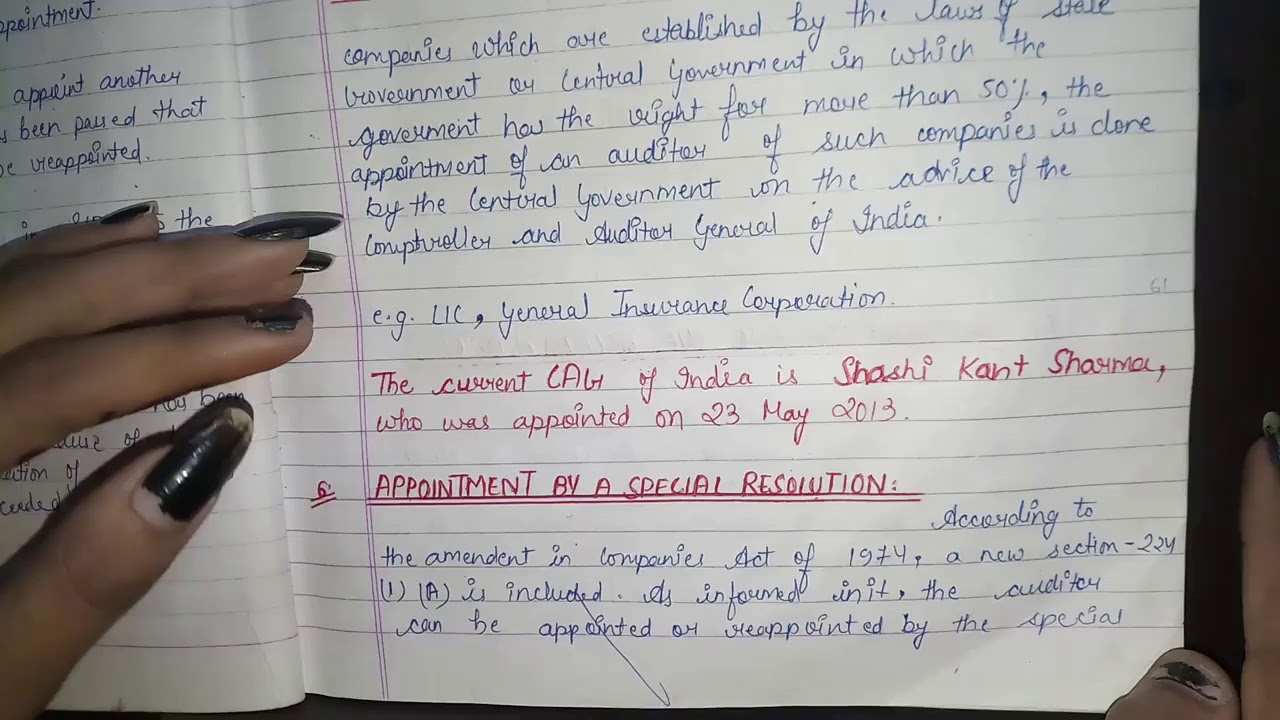 ppointment.
appoint another
s been passed that
be reappointed.
the
has been
ause of
ction of
companies which are established by the laws of state
Government or Central Government in which the
goverment has the right for more than 50%, the
appointment of an auditor of such companies is done
by the Central Government on the advice of the
Comptroller and Auditor General of India.
e.g. LIC, General Insurance Corporation.
61
The current CAG of India is Shashi Kant Sharma,
who was appointed on 23 May 2013.
6. APPOINTMENT BY A SPECIAL RESOLUTION:
According to
the amendent in Companies Act of 1974, a new section-224
(1) (A) is included. As informed in it, the auditor
can be appointed or reappointed by the special